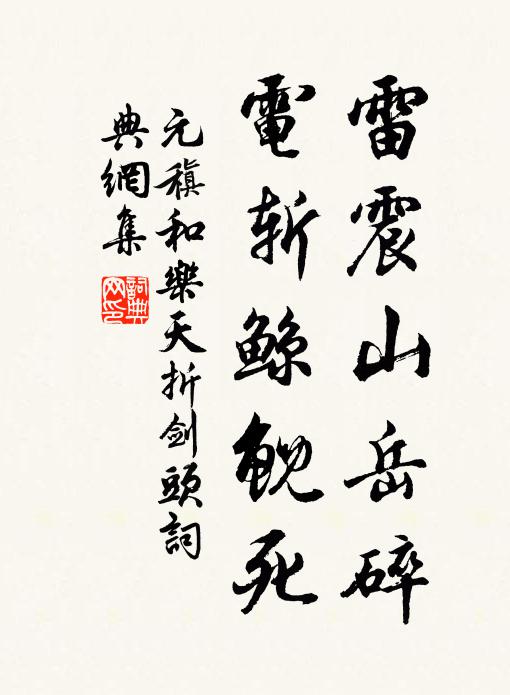 雷震山岳碎
電斬鯨鯢死
元稹和樂天折劍頭詞
典網集
詞典網印